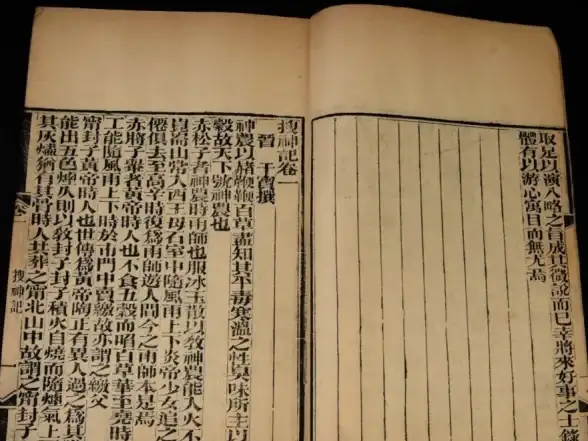 取足以演八略之旨成其微說而已幸將來好事之士錄
體有以游心寓目而無尤焉
搜神記卷一
晉 干寶撰
神農以赭鞭鞭百草盡知其平毒寒溫之性臭味所主以
穀故天下號神農也
赤松子者神農時雨師也服冰玉散以教神農能入火不
崑崙山常入西王母石室中隨風雨上下炎帝少女追之
僊俱去至高辛時復爲雨師遊人間今之雨師本是焉
赤將子轝者黃帝時人也不食五穀而啗百草華至堯時
工能隨風雨上下時於市門中賣繳故亦謂之繳父
甯封子黃帝時人也世傳爲黃帝陶正有異人過之爲其
能出五色煙久則以敎封子封子積火自燒而隨煙氣上
其灰燼猶有其骨時人共葬之甯北山中故謂之甯封子
卷一
搜神記